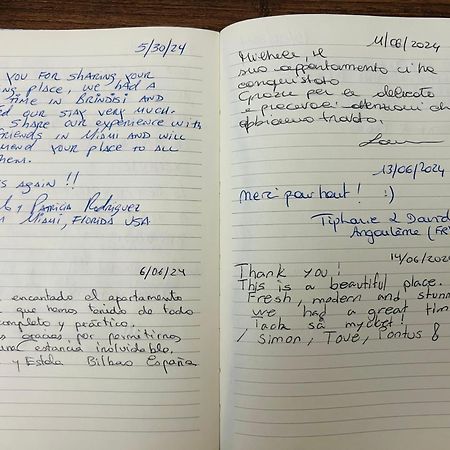 5/30/24
YOU FOR SHARING YOUR
PLACE, WE HAD A
TIME IN BRINDISI AND
OUR STAY VERY MUCH.
SHARE OUR EXPERIENCE WITH
FRIENDS IN MIAMI AND WILL
YOUR PLACE TO ALL
THEM.
AGAIN !!
Y PATRICIA RODRIGUEZ
MIAMI, FLORIDA USA
6/06/24
encantado el apartamento
que hemos tenido de todo
completo y práctico.
gracias por permitirnos
una estancia inolvidable.
y Estela Bilbao España
11/06/2024
Michele, il
suo appartamento ci ha
conquistato
Grazie per la delicate
e preavose attenzioni che
abbiamo trovato.
13/06/2024
Merci pour tout ! :)
Tiphanie & David
Angoulême (FR)
14/06/2024
Thank you!
This is a beautiful place.
Fresh, modern and
we had a great
Tack så mycket!
Simon, Tove, Pontus &